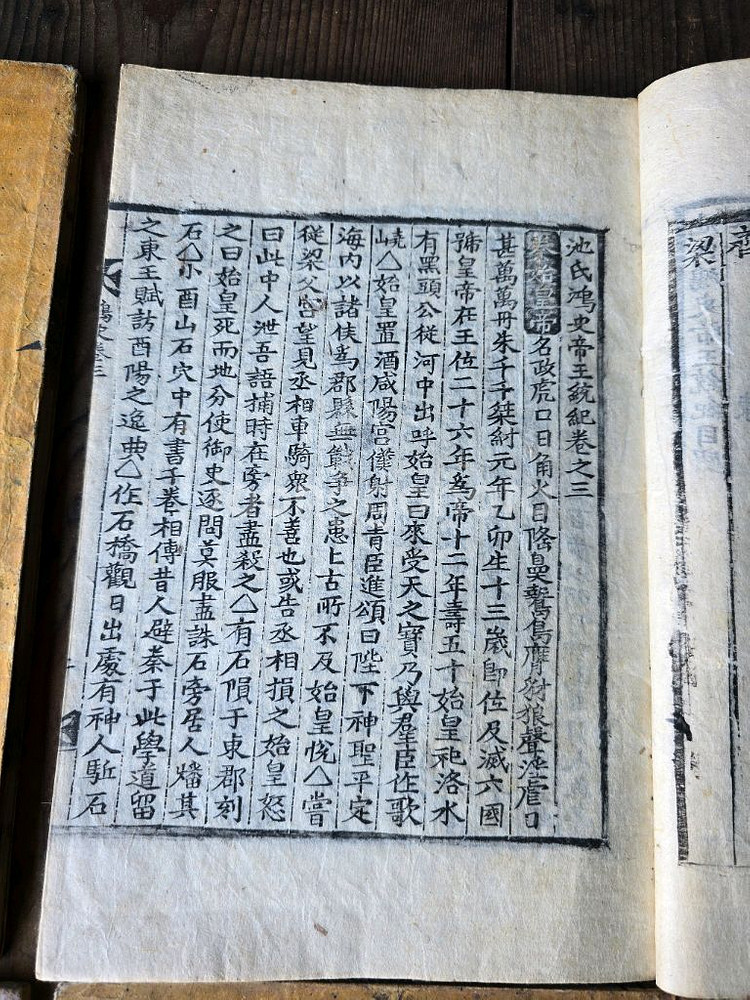 池氏鴻史帝王統紀卷之三
秦始皇帝名政虎口日角火日隆鼻鷙鳥膺豺狼聲淫虐日
甚萬萬丹朱千千桀紂元年乙卯生十三歲卽位及滅六國
號皇帝在王位二十六年爲帝十二年壽五十始皇祀洛水
有黑頭公從河中出呼始皇曰來受天之寶乃與羣臣作歌
嶢△始皇置酒咸陽宮僕射周青臣進頌曰陛下神聖平定
海内以諸侯爲郡縣無戰爭之患上古所不及始皇悅△嘗
從梁父宮望見丞相車騎衆不善也或告丞相損之始皇怒
曰此中人泄吾語捕時在旁者盡殺之△有石隕于東郡刻
之曰始皇死而地分使御史逐問莫服盡誅石旁居人燔其
石△小酉山石穴中有書千卷相傳昔人避秦于此學道留
之東王賦訪酉陽之逸典△作石橋觀日出處有神人駈石
鴻史卷三
齊
梁